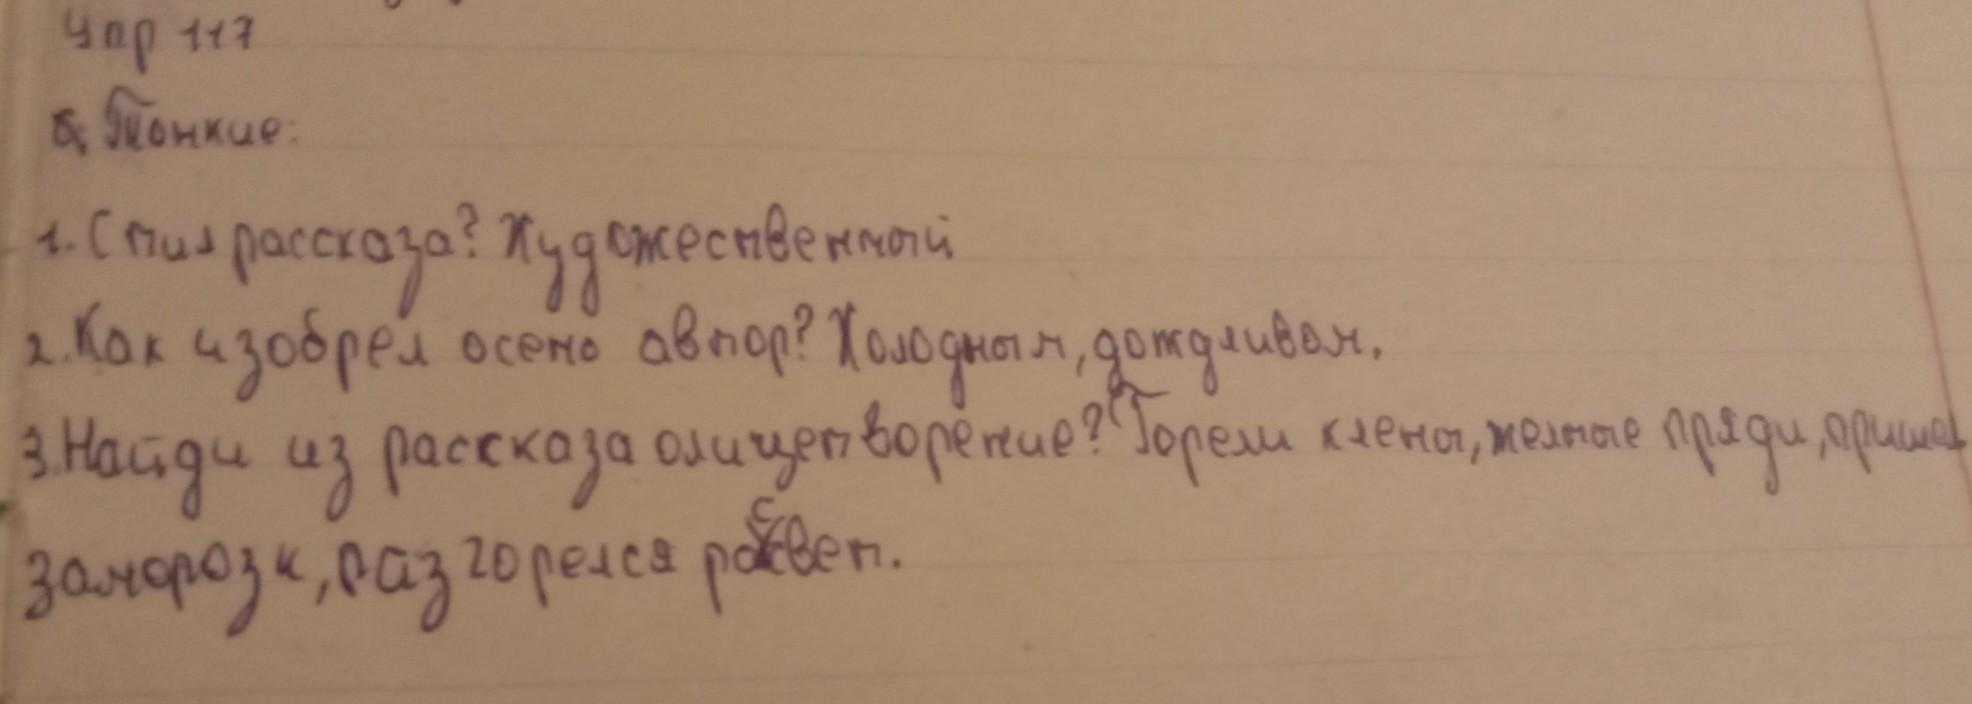 Упр 117
б, Тонкие:
1. Стил рассказа? Художественный
2. Как изобрел осень автор? Холодным, дождливом.
3. Найди из рассказа олицетворение? Горели клены, желтые пряди, пришел
заморозк, разгорелся расвет.